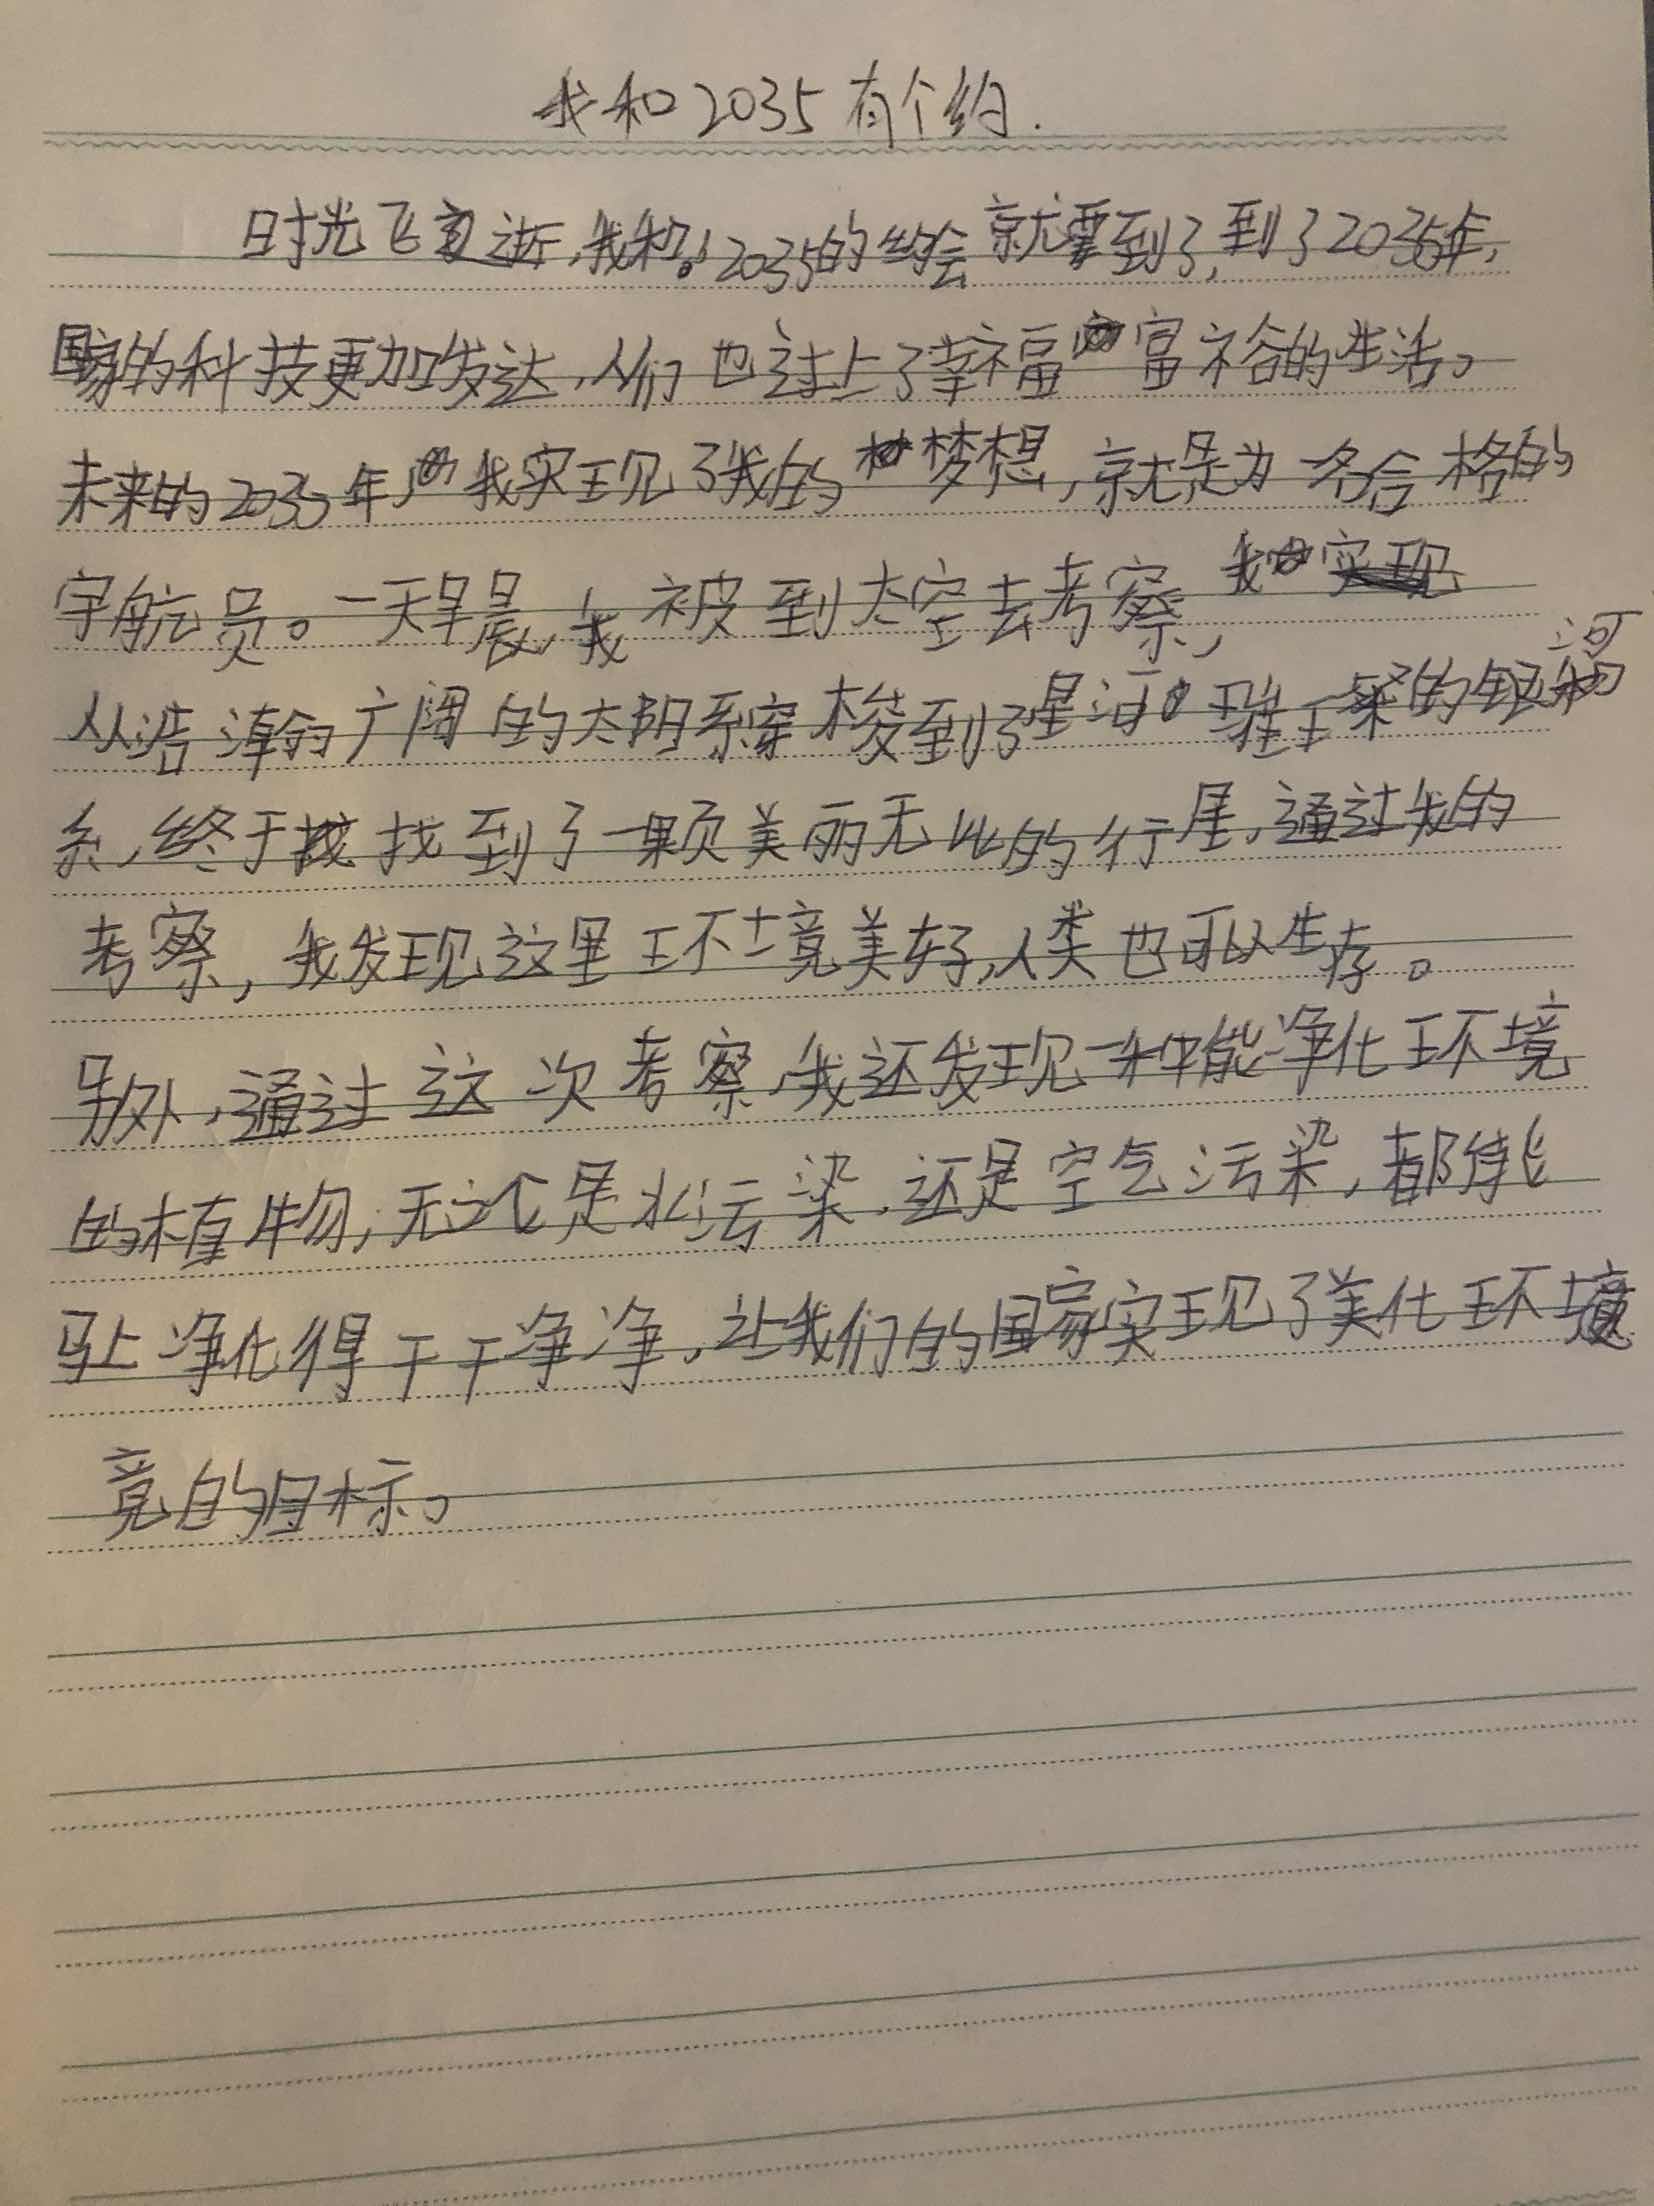 我和2035有个约.
时光飞逝,我和2035的约会就要到了,到了2035年,
国家的科技更加发达,人们也过上了幸福富裕的生活。
未来的2035年,我实现了我的梦想,就是为一名合格的
宇航员。一天早晨,我被到太空去考察,我
从浩瀚广阔的太阳系穿梭到了星河璀璨的银河
系,终于找到了一颗美丽无比的行星,通过我的
考察,我发现这里环境美好,人类也可以生存。
另外,通过这次考察,我还发现一种能净化环境
的植物,无论是水污染,还是空气污染,都能
马上净化得干干净净,让我们的国家实现了美化环境
竟的目标。